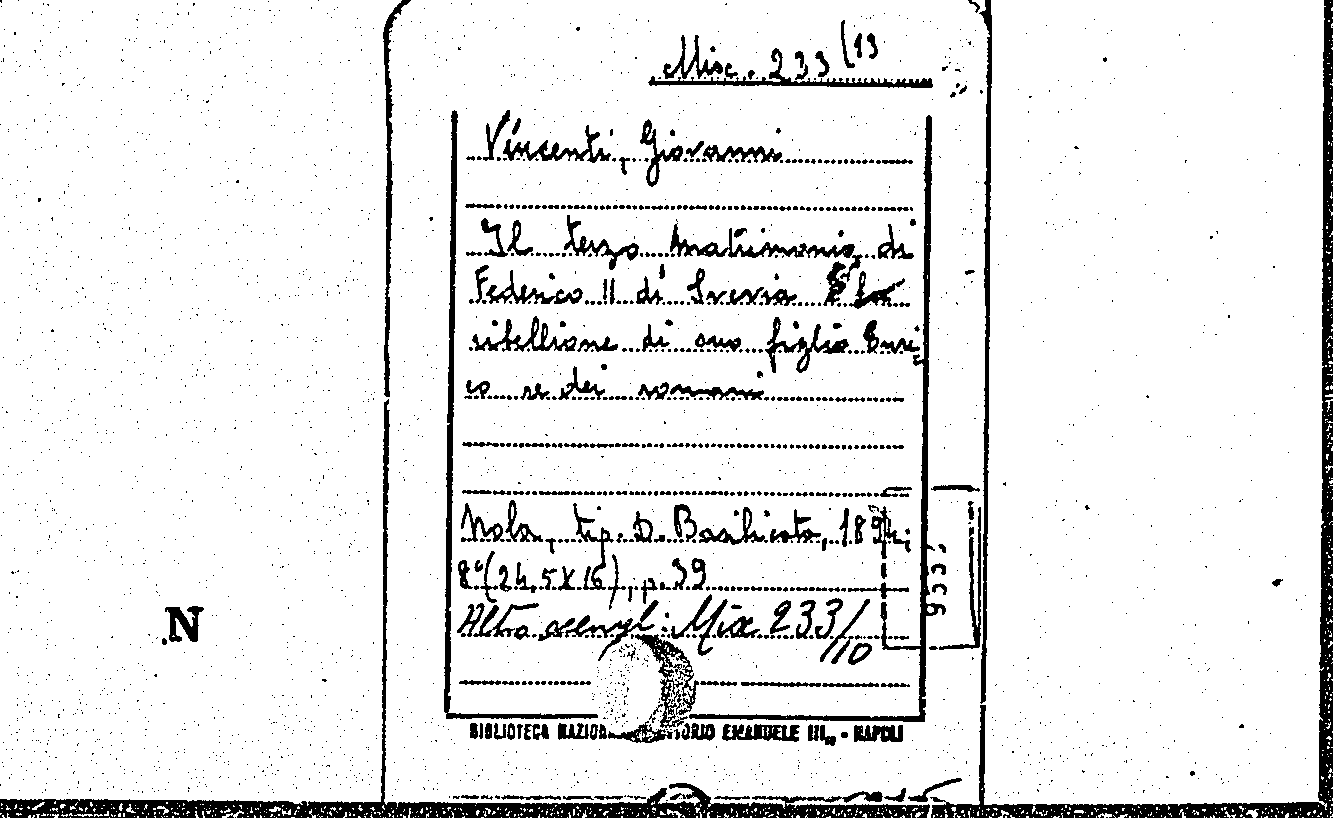 Misc. 233 (13
Vincenti, Giovanni
Il terzo matrimonio di
Federico II di Svevia e la
ribellione di suo figlio Enri=
co re dei romani
Nola, tip. D. Basilicata, 1894;
8° (24,5 X 16), p. 39
Altro esempl: Misc 233/
/10
N
BIBLIOTECA NAZION ORIO EMANUELE III„ - NAPOLI